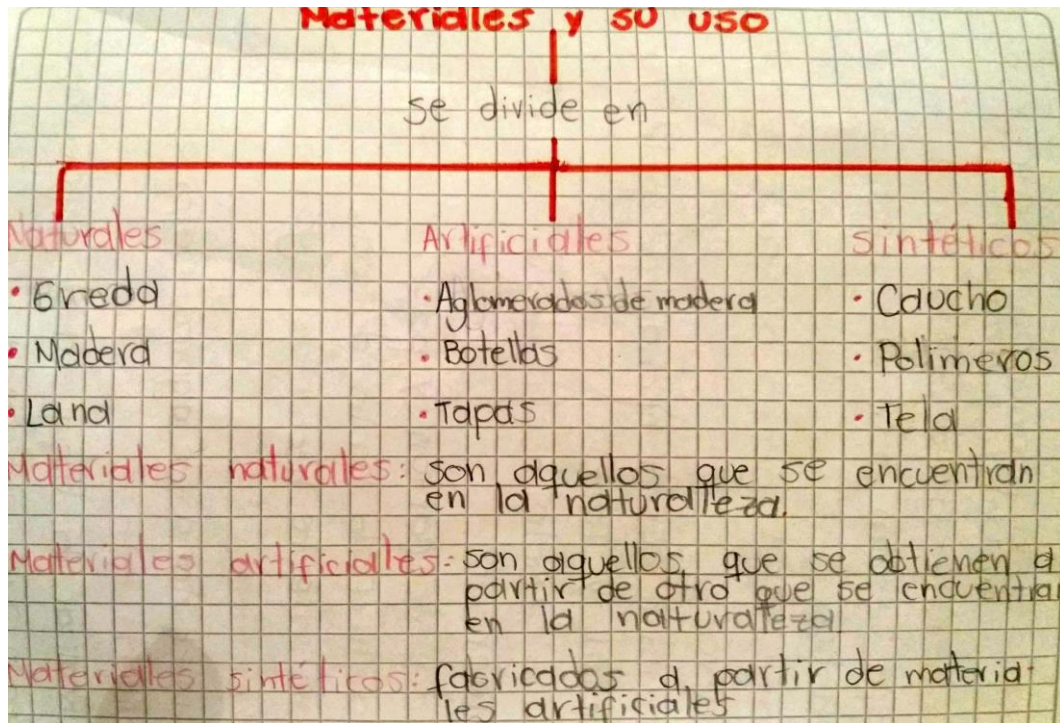 Materiales y su uso
se divide en
Naturales Artificiales Sintéticos
• Greda • Aglomerados de madera • Caucho
• Madera • Botellas • Polimeros
• Lana • Tapas • Tela
Materiales naturales: son aquellos que se encuentran
en la naturaleza.
Materiales artificiales: son aquellos que se obtienen a
partir de otro que se encuentra
en la naturaleza
Materiales sintéticos: fabricados a partir de materia-
les artificiales